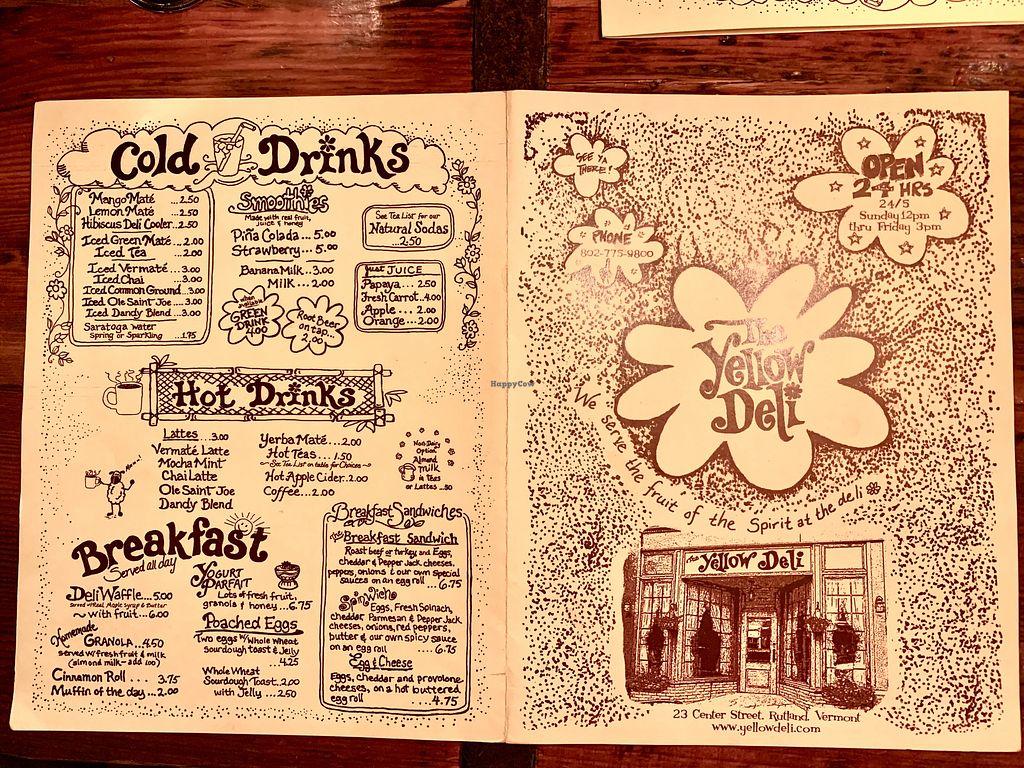 Cold Drinks
Mango Maté ...2.50
Lemon Maté ...2.50
Hibiscus Deli Cooler..2.50
Iced Green Maté...2.00
Iced Tea ...2.00
Iced Vermaté...3.00
Iced Chai ...3.00
Iced Common Ground...3.00
Iced Ole Saint Joe....3.00
Iced Dandy Blend...3.00
Saratoga water
Spring or Sparkling ...1.75
Smoothies
Made with real fruit,
juice & honey
Piña Colada...5.00
Strawberry...5.00
Banana Milk..3.00
Milk...2.00
when available
GREEN
DRINK
4.00
Root Beer
on tap...
2.00
See Tea List for our
Natural Sodas
...2.50
Just JUICE
Papaya... 2.50
Fresh Carrot..4.00
Apple.... 2.00
Orange...2.00
Hot Drinks
Lattes ...3.00
Vermaté Latte
Mocha Mint
Chai Latte
Ole Saint Joe
Dandy Blend
Yerba Maté...2.00
Hot Teas....1.50
~See Tea List on table for Choices~
Hot Apple Cider..2.00
Coffee...2.00
Non-Dairy
Option
Almond
milk
in Teas
or Lattes...50
Breakfast
Served all day
Deli Waffle...5.00
Served w/Real Maple Syrup & Butter
~ with fruit...6.00
Homemade
GRANOLA..4.50
served w/fresh fruit & milk
(almond milk-add 1.00)
Cinnamon Roll .... 3.75
Muffin of the day...2.00
YOGURT
PARFAIT
Lots of fresh fruit,
granola & honey...6.75
Poached Eggs
Two eggs w/Whole Wheat
Sourdough toast & Jelly
4.25
Whole Wheat
Sourdough Toast..2.00
with Jelly ...2.50
Breakfast Sandwiches
Breakfast Sandwich
Roast beef or turkey and Eggs,
cheddar & Pepper Jack cheeses,
peppers, onions & our own special
sauces on an egg roll ...6.75
Spinwich
Eggs, Fresh Spinach,
cheddar, Parmesan & Pepper Jack
cheeses, onions, red peppers,
butter & our own spicy sauce
on an egg roll .... 6.75
Egg & Cheese
Eggs, cheddar and provolone
cheeses, on a hot buttered
egg roll .... 4.75
SEE YA
THERE!
PHONE
802-775-9800
OPEN
24 HRS
24/5
Sunday 12pm
thru Friday 3pm
The
Yellow
Deli
We serve the fruit of the Spirit at the deli
the Yellow Deli
23 Center Street, Rutland, Vermont
www.yellowdeli.com
HappyCow